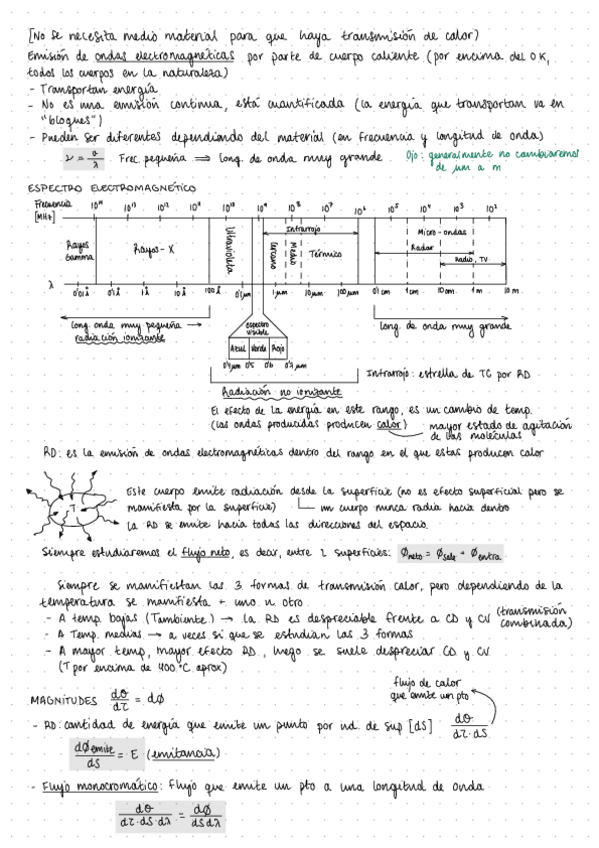 [No se necesita medio material para que haya transmisión de calor)
Emisión de ondas electromagnéticas por parte de cuerpo caliente (por encima del 0K,
todos los cuerpos en la naturaleza)
- Transportan energía
- No es una emisión continua, está cuantificada (la energía que transportan va en
"bloques")
- Pueden ser diferentes dependiendo del material (en frecuencia y longitud de onda)
ν = σ/λ . Frec. pequeña ⟹ long. de onda muy grande.
Ojo: generalmente no cambiaremos
de μm a m
ESPECTRO ELECTROMAGNÉTICO
Frecuencia
[MHz]
10¹⁰ 10⁹ 10⁸ 10⁷ 10⁶ 10⁵ 10⁴ 10³ 10²
Rayos
Gamma
Rayos-X
Ultravioleta
Infrarrojo
Cercano
Medio
Térmico
Micro-ondas
Radar
Radio, TV
λ
0'01Å 0'1Å 1Å 10Å 100Å 0'1μm 1μm 10μm 100μm 0'1cm 1cm 10cm 1m 10m
Long. onda muy pequeña →
radiación ionizante
espectro
visible
Azul Verde Rojo
0'4μm 0'5 0'6 0'7μm
Long. de onda muy grande
Infrarrojo: estrella de TC por RD
Radiación no ionizante
El efecto de la energía en este rango, es un cambio de temp.
(las ondas producidas producen calor)
mayor estado de agitación
de las moléculas
RD: es la emisión de ondas electromagnéticas dentro del rango en el que estas producen calor
T
Este cuerpo emite radiación desde la superficie (no es efecto superficial pero se
manifiesta por la superficie) un cuerpo nunca radia hacia dentro
La RD se emite hacia todas las direcciones del espacio.
Siempre estudiaremos el flujo neto, es decir, entre 2 superficies: Φneto = Φsale - Φentra
Siempre se manifiestan las 3 formas de transmisión calor, pero dependiendo de la
temperatura se manifiesta + uno u otro.
- A temp. bajas (Tambiente) → la RD es despreciable frente a CD y CV (transmisión
combinada)
- A Temp. medias → a veces sí que se estudian las 3 formas
- A mayor temp, mayor efecto RD, luego se suele despreciar CD y CV
(T por encima de 400 °C aprox)
MAGNITUDES dθ/dτ = dΦ
flujo de calor
que emite un pto
- RD: cantidad de energía que emite un punto por ud. de sup [dS] dθ/dτ·dS
dΦemite/dS = E (emitancia)
- Flujo monocromático: Flujo que emite un pto a una longitud de onda
dθ/dτ·dS·dλ = dΦ/dSdλ